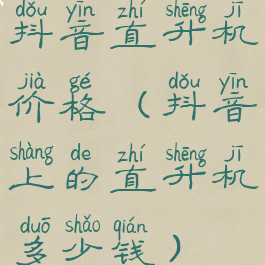 dǒu yīn zhí shēng jī
抖音直升机
jià gé dǒu yīn
价格（抖音
shàng de zhí shēng jī
上的直升机
duō shǎo qián
多少钱）